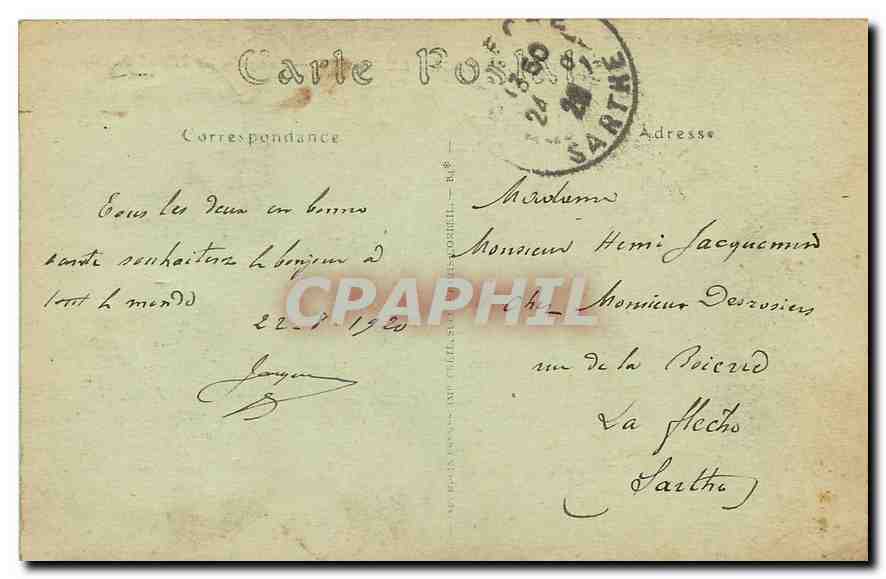 Carte Postale
Correspondance
Adresse
13 50
24 8
SARTHE
Tous les deux en bonne
santé souhaitons le bonjour à
tout le monde
22-8-1920
Jacques
Madame
Monsieur Henri Jacquemin
chez Monsieur Desrosiers
rue de la Boierie
La flèche
(Sarthe)
CPAPHIL